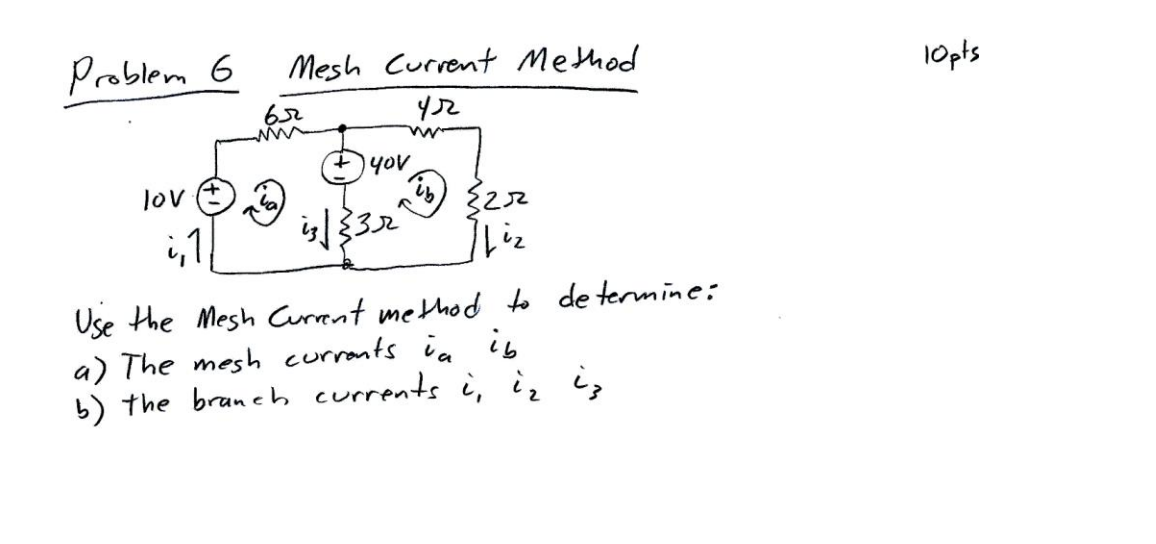 Problem 6 Mesh Current Method 10pts
6Ω 4Ω
+ 40V
-
10V + ia ib 2Ω
-
i1 i3 3Ω i2
Use the Mesh Current method to determine:
a) The mesh currents ia ib
b) the branch currents i1 i2 i3